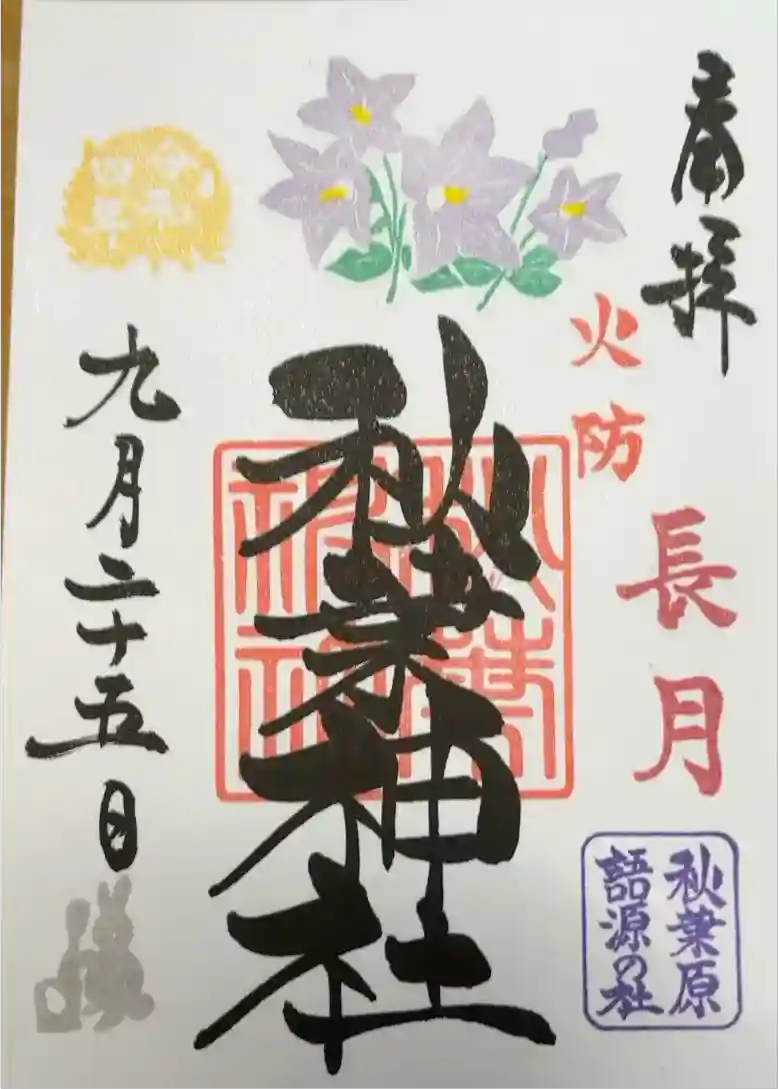 奉拝
火防
長月
秋葉原
語源の社
秋葉神社
秋葉
神社
令和
四年
九月二十五日